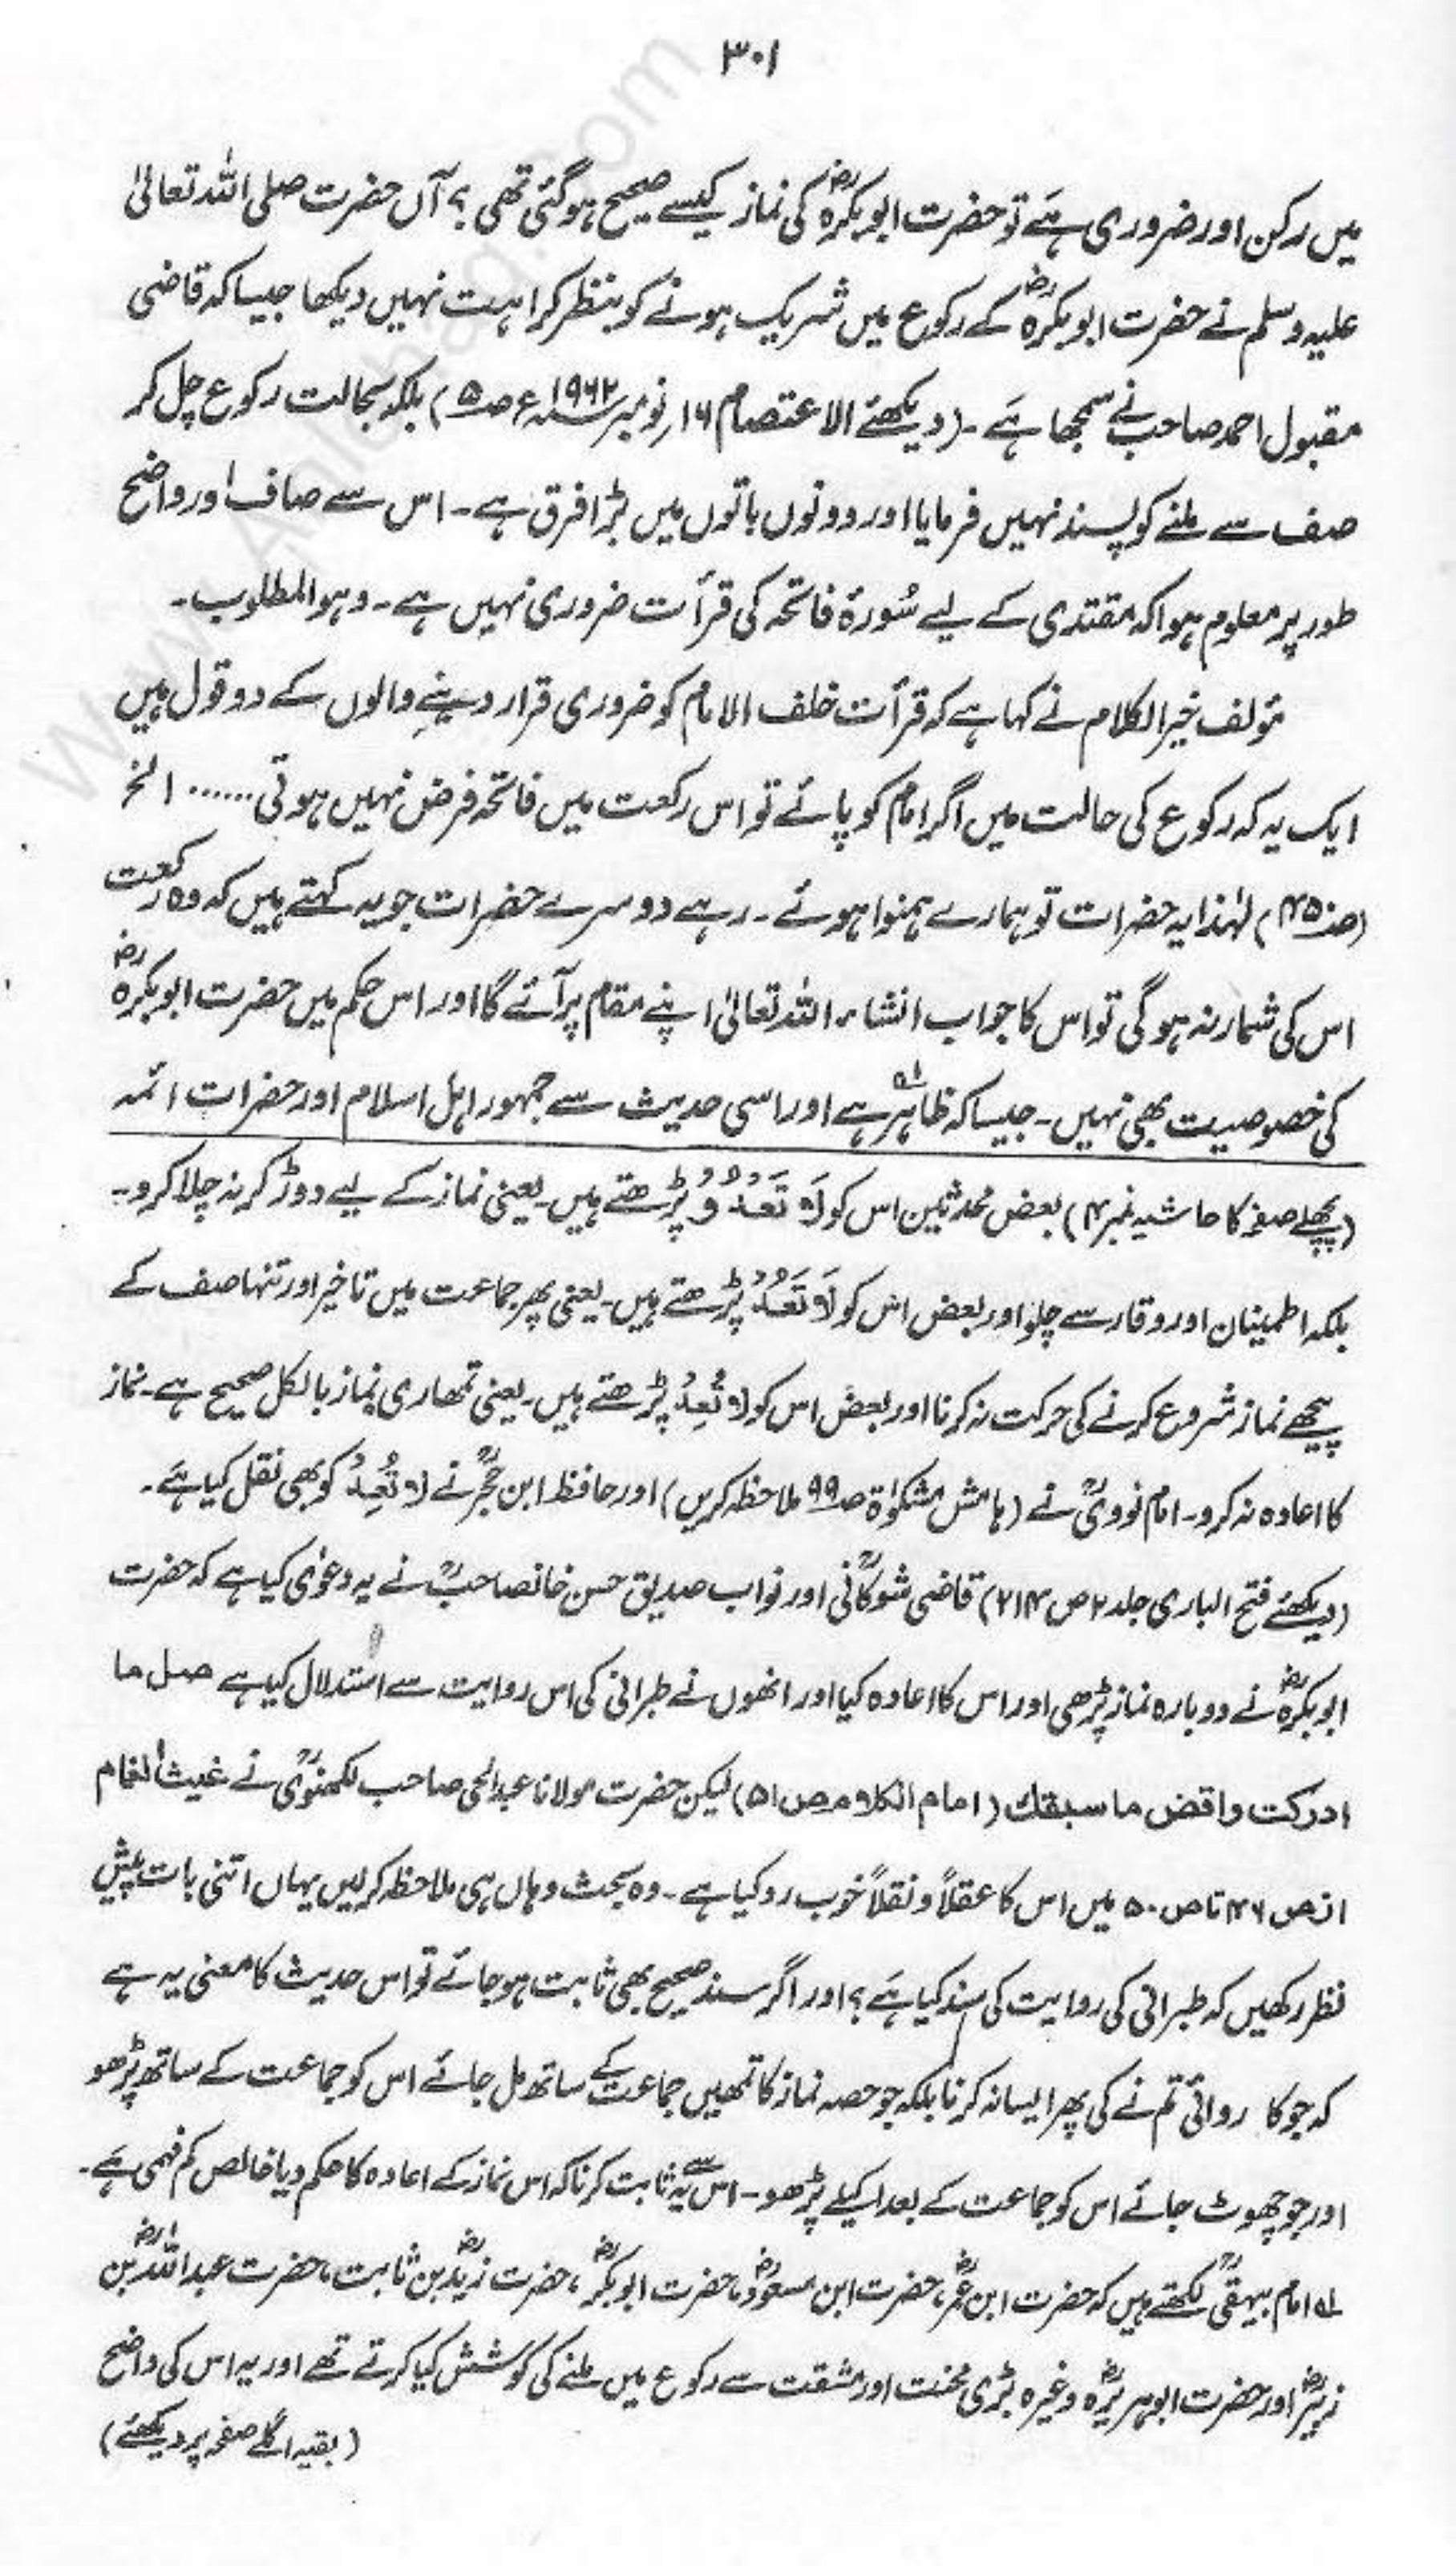 ۳۰۱
میں رکن اور ضروری ہے تو حضرت ابوبکرہؓ کی نماز کیسے صحیح ہوگئی تھی؟ آں حضرت صلی اللہ تعالیٰ
علیہ وسلم نے حضرت ابوبکرہؓ کے رکوع میں شریک ہونے کو بنظر کراہت نہیں دیکھا جیسا کہ قاضی
مقبول احمد صاحب نے سمجھا ہے۔ (دیکھئے الاعتصام ۱۶ نومبر ۱۹۶۲ء ص۵) بلکہ بحالت رکوع چل کر
صف سے ملنے کو پسند نہیں فرمایا اور دونوں باتوں میں بڑا فرق ہے۔ اس سے صاف اور واضح
طور پر معلوم ہوا کہ مقتدی کے لیے سُورۂ فاتحہ کی قرأت ضروری نہیں ہے۔ وہو المطلوب۔
مؤلف خیر الکلام نے کہا ہے کہ قرأت خلف الامام کو ضروری قرار دینے والوں کے دو قول ہیں
ایک یہ کہ رکوع کی حالت میں اگر امام کو پائے تو اس رکعت میں فاتحہ فرض نہیں ہوتی...... الخ
(ص۴۵۰) لہٰذا یہ حضرات تو ہمارے ہمنوا ہوئے۔ رہے دوسرے حضرات جو یہ کہتے ہیں کہ وہ رکعت
اس کی شمار نہ ہوگی تو اس کا جواب انشاء اللہ تعالیٰ اپنے مقام پر آئے گا اور اس حکم میں حضرت ابوبکرہؓ
کی خصوصیت بھی نہیں۔ جیسا کہ ظاہر ہے۱ اور اسی حدیث سے جمہور اہل اسلام اور حضرات ائمہ
(پچھلے صفحہ کا حاشیہ نمبر ۴) بعض محدثین اس کو لَا تَعْدُوْ پڑھتے ہیں۔ یعنی نماز کے لیے دوڑ کر نہ چلا کرو۔
بلکہ اطمینان اور وقار سے چلو اور بعض اس کو لَا تَعُدْ پڑھتے ہیں۔ یعنی پھر جماعت میں تاخیر اور تنہا صف کے
پیچھے نماز شروع کرنے کی حرکت نہ کرنا اور بعض اس کو لا تُعِدْ پڑھتے ہیں۔ یعنی تمھاری نماز بالکل صحیح ہے۔ نماز
کا اعادہ نہ کرو۔ امام نوویؒ نے (ہامش مشکوٰۃ ص۹۹ ملاحظہ کریں) اور حافظ ابن حجرؒ نے لا تُعِدْ کو بھی نقل کیا ہے۔
(دیکھئے فتح الباری جلد ۲ ص ۲۱۴) قاضی شوکانیؒ اور نواب صدیق حسن خانصاحبؒ نے یہ دعوٰی کیا ہے کہ حضرت
ابوبکرہؓ نے دوبارہ نماز پڑھی اور اس کا اعادہ کیا اور انھوں نے طبرانی کی اس روایت سے استدلال کیا ہے صل ما
ادرکت واقض ما سبقك (امام الکلام ص ۵۱) لیکن حضرت مولانا عبدالحی صاحب لکھنویؒ نے غیث الغمام
از ص ۴۶ تا ص ۵۰ میں اس کا عقلاً و نقلاً خوب رد کیا ہے۔ وہ بحث وہاں ہی ملاحظہ کرلیں یہاں اتنی بات پیش
نظر رکھیں کہ طبرانی کی روایت کی سند کیا ہے؟ اور اگر سند صحیح بھی ثابت ہو جائے تو اس حدیث کا معنی یہ ہے
کہ جو کا روائی تم نے کی پھر ایسا نہ کرنا بلکہ جو حصہ نماز کا تمھیں جماعت کے ساتھ مل جائے اس کو جماعت کے ساتھ پڑھو
اور جو چھوٹ جائے اس کو جماعت کے بعد اکیلے پڑھو۔ اس سے یہ ثابت کرنا کہ اس نماز کے اعادہ کا حکم دیا خالص کم فہمی ہے۔
۱ امام بیہقیؒ لکھتے ہیں کہ حضرت ابن عمرؓ، حضرت ابن مسعودؓ، حضرت ابوبکرؓ، حضرت زیدؓ بن ثابت، حضرت عبداللہؓ بن
زبیرؓ اور حضرت ابوہریرہؓ وغیرہ بڑی محنت اور مشقت سے رکوع میں ملنے کی کوشش کیا کرتے تھے اور یہ اس کی واضح
(بقیہ اگلے صفحہ پر دیکھئے)